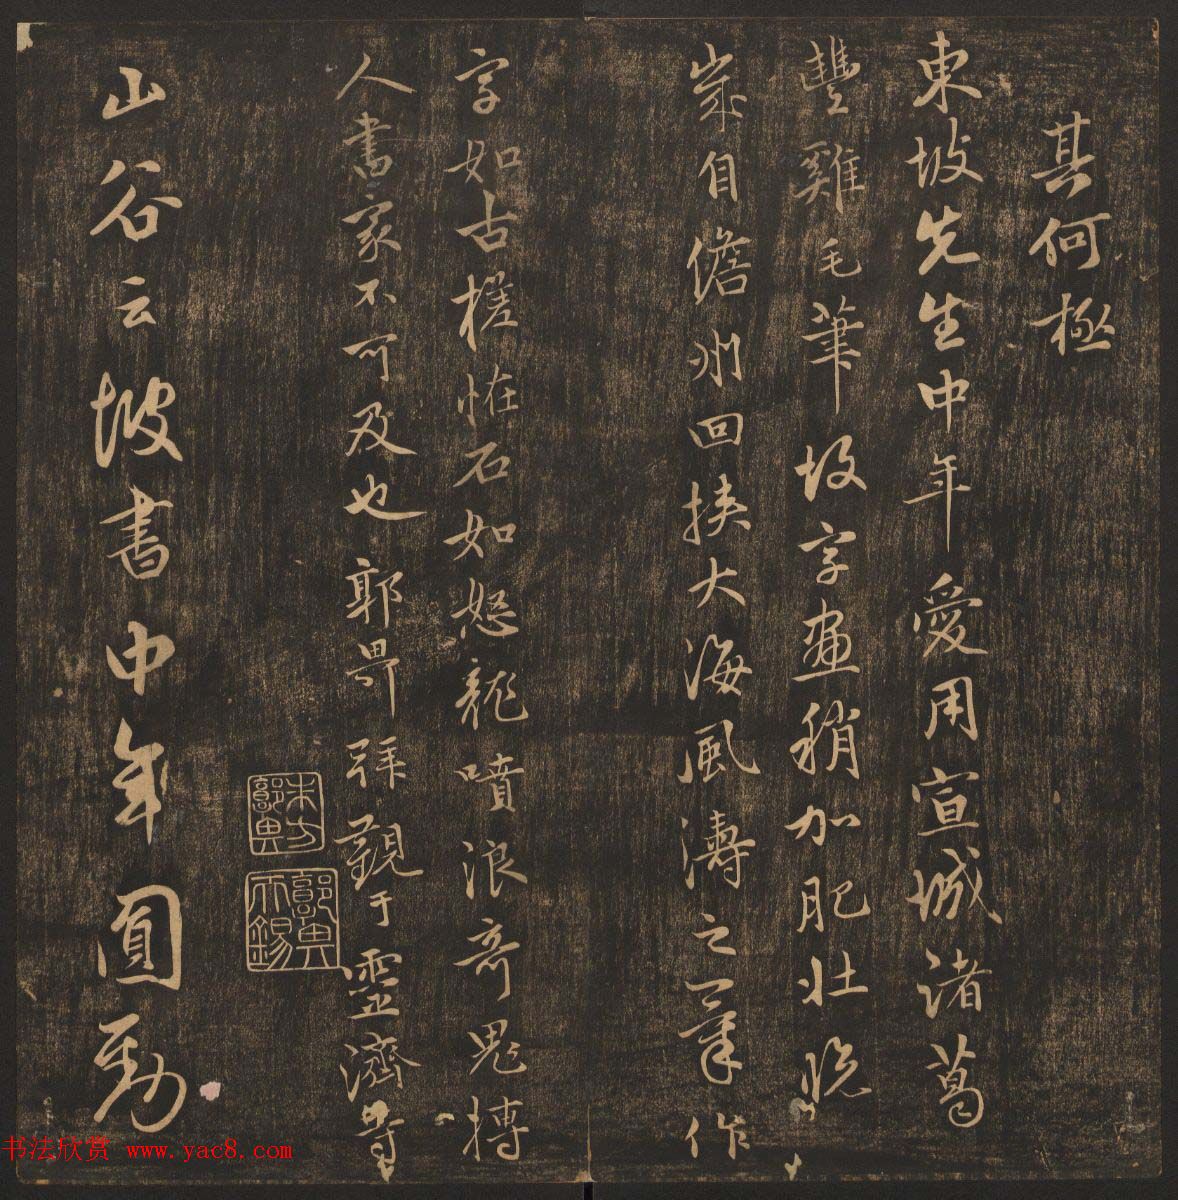 其何極
東坡先生中年愛用宣城諸葛
豐雞毛筆故字畫稍加肥壯晚
嵗自儋州回挾大海風濤之氣作
字如古槎恠石如怒龍噴浪奇鬼搏
人書家不可及也郭畀拜觀于靈濟寺
山谷云坡書中年圓勁
郭畀
郭畀
天錫
书法欣赏 www.yac8.com